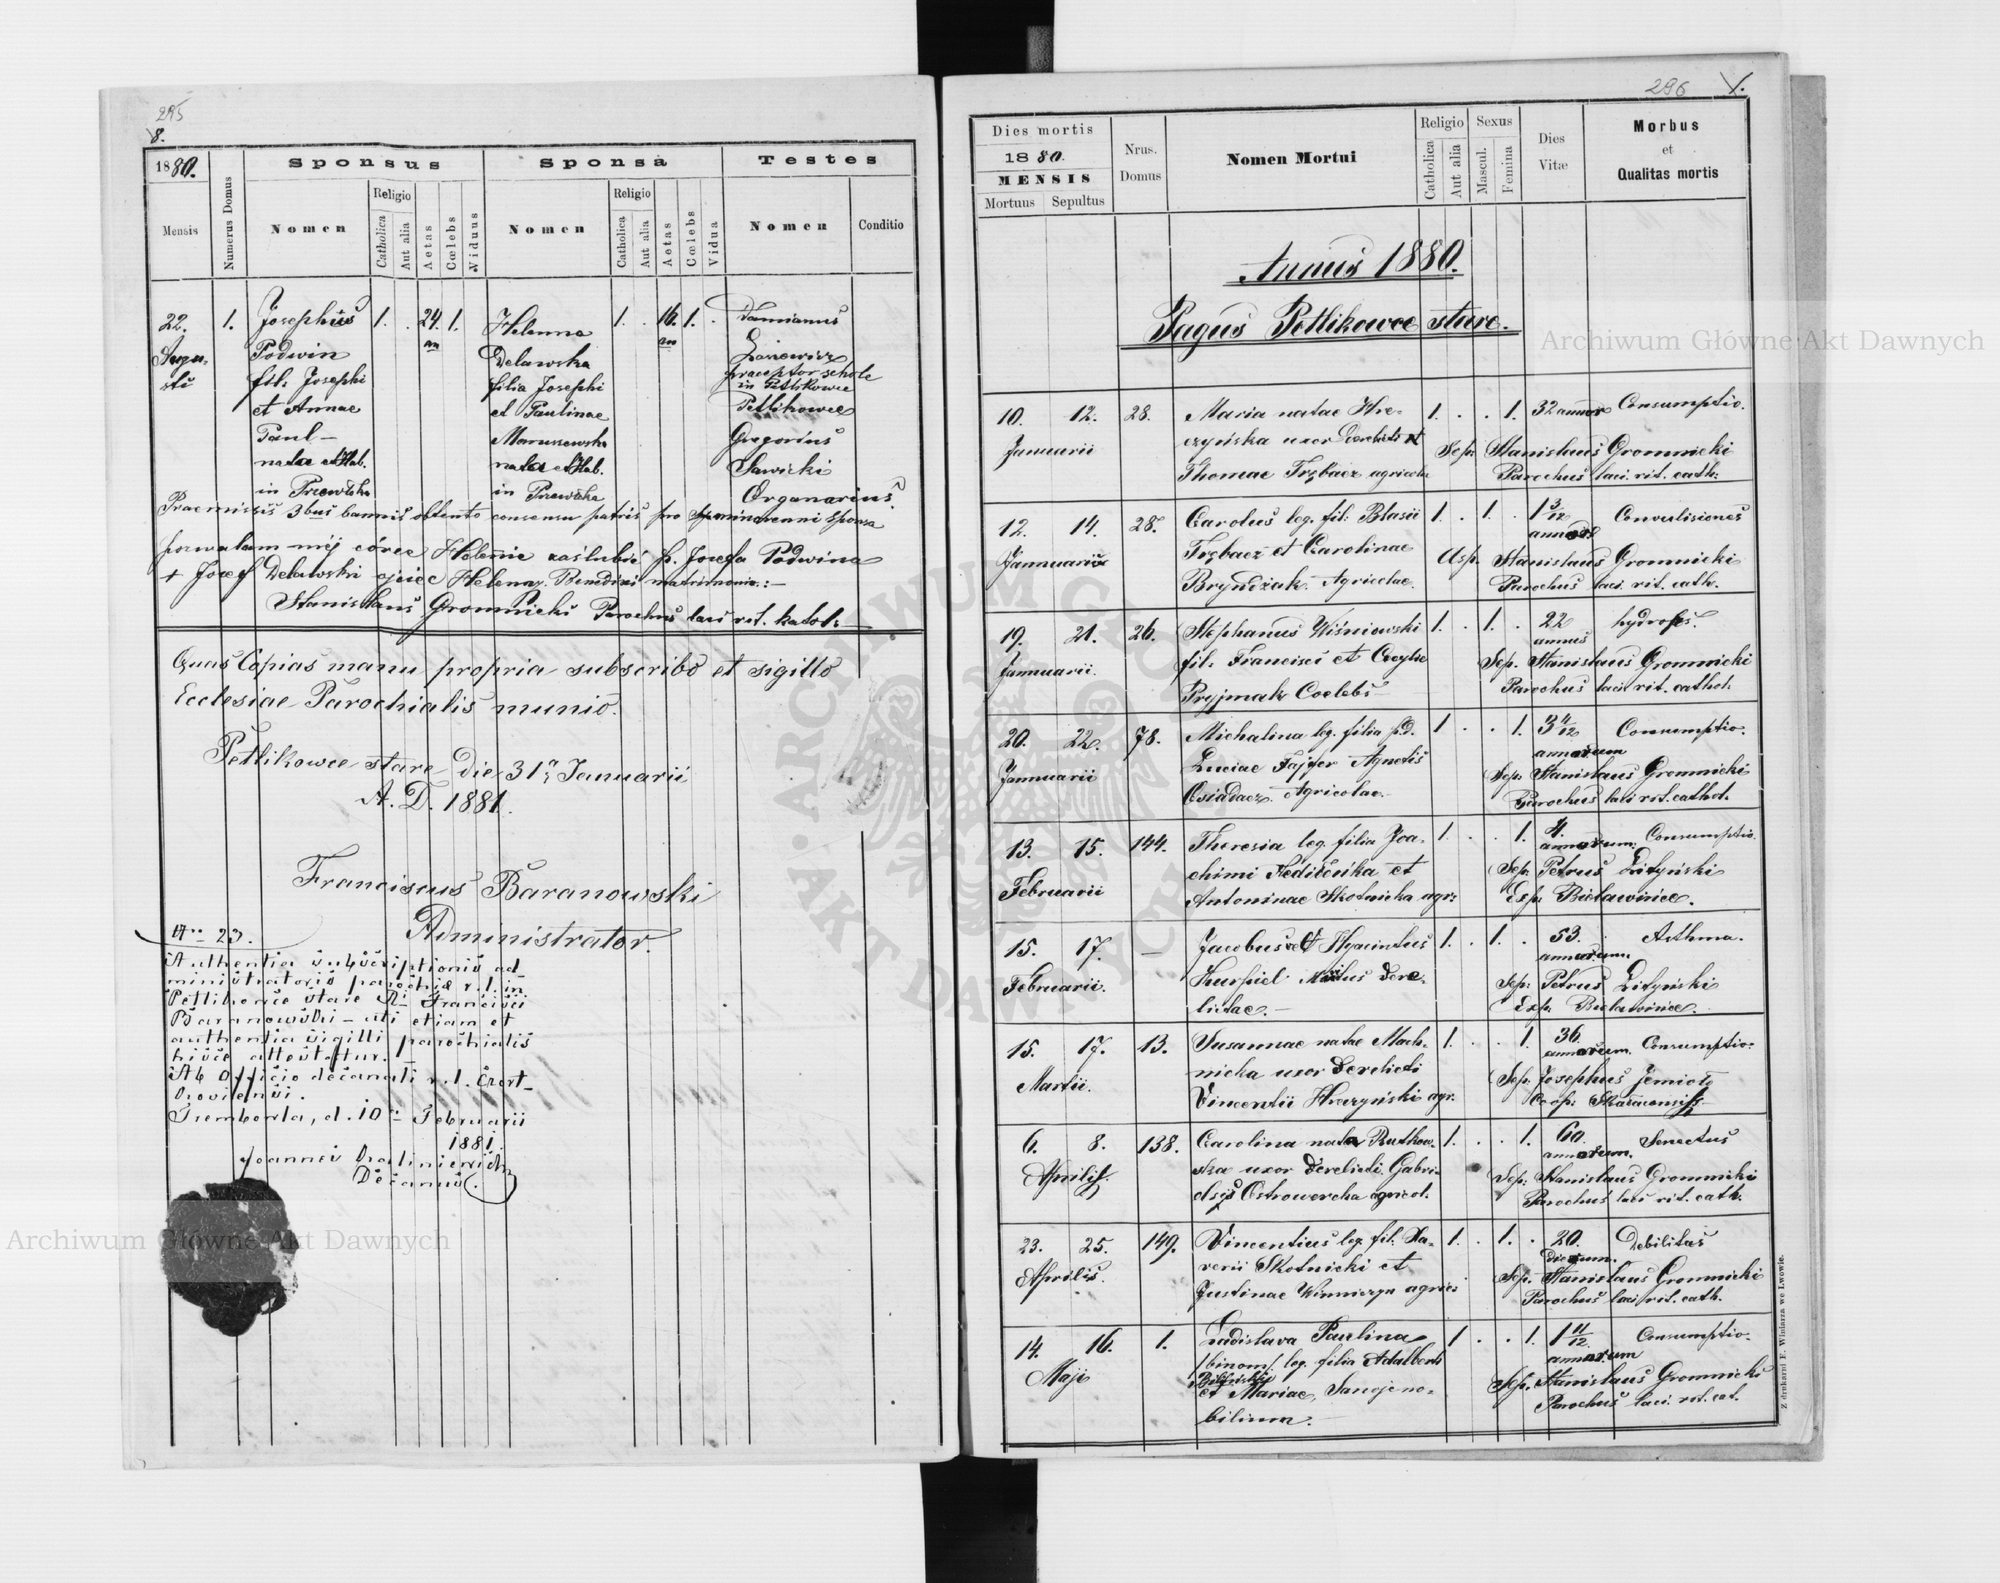 295
8.
1880.
Sponsus
Sponsa
Testes
Mensis
Numerus Domus
Nomen
Religio
Catholica
Aut alia
Aetas
Cœlebs
Viduus
Nomen
Religio
Catholica
Aut alia
Aetas
Cœlebs
Vidua
Nomen
Conditio
22. 1. Josephus 1. . 24. 1. Helenna 1. . 16. 1. . Damianus
Augu-
sti
Podwin
fil: Josephi
et Annae
Paul-
natu et Hab.
Delawska
filia Josephi
et Paulinae
Maruszewska
nata et Hab.
praeceptor schole
in Petlikowce
Petlikowce
Gregorius
Sawicki
Organarius
Praemissis 3bus bannis obtento consensu patris pro sponsa
pozwalam mej córce Helenie zaślubić p. Józefa Podwina
+ Józef Delawski ojciec Heleny. Benedixi matrimonio:-
Stanislaus Gromnicki Parochus laci rit. katol:
Quas Copias manu propria subscribo et sigillo
Ecclesiae Parochialis munio.
Petlikowce stare Die 31a Januarii
A. D. 1881.
Franciscus Baranowski
Administrator.
Nro 23.
Authentia subscriptionis ad-
ministratoris parochiae r. l. in
Petlikowce stare Francisci
Baranowski - uti etiam et
authentia sigilli parochialis
hisce attestatur.
Ab Officio decanali r. l. Czort-
coviensi.
Trembowla, d. 10 Februarii
1881.
Decanus.
296 1.
Dies mortis
1880.
MENSIS
Mortuus Sepultus
Nrus.
Domus
Nomen Mortui
Religio
Catholica
Aut alia
Sexus
Mascul.
Femina
Dies
Vitæ
Morbus
et
Qualitas mortis
Annus 1880.
Pagus Petlikowce stare.
10. 12. 28. Maria natae Hre- 1. . . 1. 32 annor Consumptio.
Januarii czyńska uxor Derelicti Sep: Stanislaus Gromnicki
Thomae Trębacz agricola Parochus laci. rit. cath:
12. 14. 28. Carolus leg. fil: Blasii 1. . 1. . 1 3/12 Convulsiones
annor
Januarii Trębacz et Carolinae Stanislaus Gromnicki
Bryndziak Agricolae. Parochus laci. rit. cath.
19. 21. 26. Stephanus Wiśniowski 1. . 1. . 22 hydrops.
annus
Januarii. fil: Francisci et Sep. Stanislaus Gromnicki
Pryjmak Coelebs Parochus laci rit. cathol.
20. 22. 78. Michalina leg. filia p.d. 1 . . 1. 3 4/12 Consumptio.
annorum
Januarii Luciae Fajfer Agnetis Sep: Stanislaus Gromnicki
Osiadacz Agricolae. Parochus laci rit. cathol.
13. 15. 144. Theresia leg. filia Joa- 1. . . 1. 4. Consumptio.
annorum.
Februarii chimi et Sep. Petrus Lityński
Antoninae Skotnicka agr: Exp: Bielawince.
15. 17. - Jacobus Hyacintus 1. . 1. . 53. Asthma.
annorum.
Februarii. Kurpiel Dere- Sep: Petrus Lityński
lictae. Exp. Bielawince.
15. 17. 13. Susannae natae Mach- 1. . . 1. 36. Consumptio.
annorum.
Martii. nicka uxor derelicti Sep: Josephus Jemioło
Vincentii Hreczyński agr: Coop:
6. 8. 138. Carolina nata Rutkow- 1. . . 1. 60. Senectus
annorum.
Aprilis. ska uxor derelicti Gabri- Sep: Stanislaus Gromnicki
elis Ostrowercha agricol. Parochus laci rit. cath.
23. 25. 149. Vincentius leg. fil. Xa- 1. . 1. . 20. Debilitas
dierum.
Aprilis. verii Skotnicki et Sep. Stanislaus Gromnicki
Justinae Winniczyn agric: Parochus laci. rit. cath.
14. 16. 1. Ladislava Paulina 1 . . 1. 1 11/12 Consumptio.
annorum
Maji /binom/. leg. filia Adalberti Sep. Stanislaus Gromnicki
et Mariae, Parochus laci. rit. cat.
bilium.
Z drukarni E. Winiarza we Lwowie.
Archiwum Główne Akt Dawnych
Archiwum Główne Akt Dawnych
ARCHIWUM GŁÓWNE AKT DAWNYCH